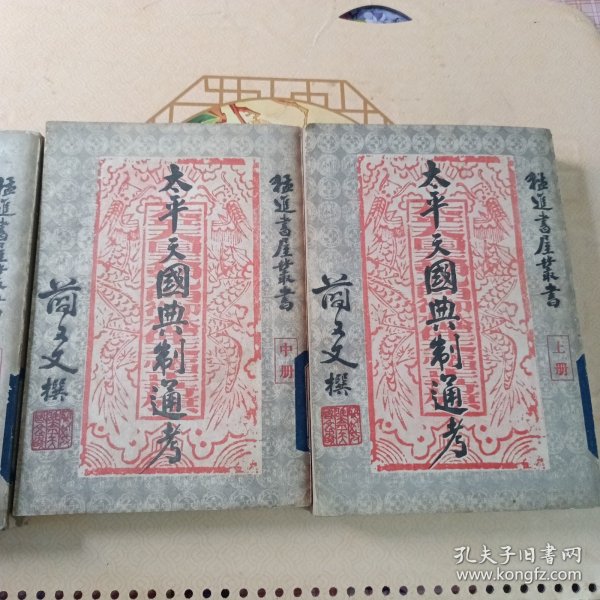 猛進書屋叢書
猛進書屋叢書
中册
太平天國典制通考
簡又文撰
猛進書屋叢書
上册
太平天國典制通考
簡又文撰
孔夫子旧书网
www.kongfz.com